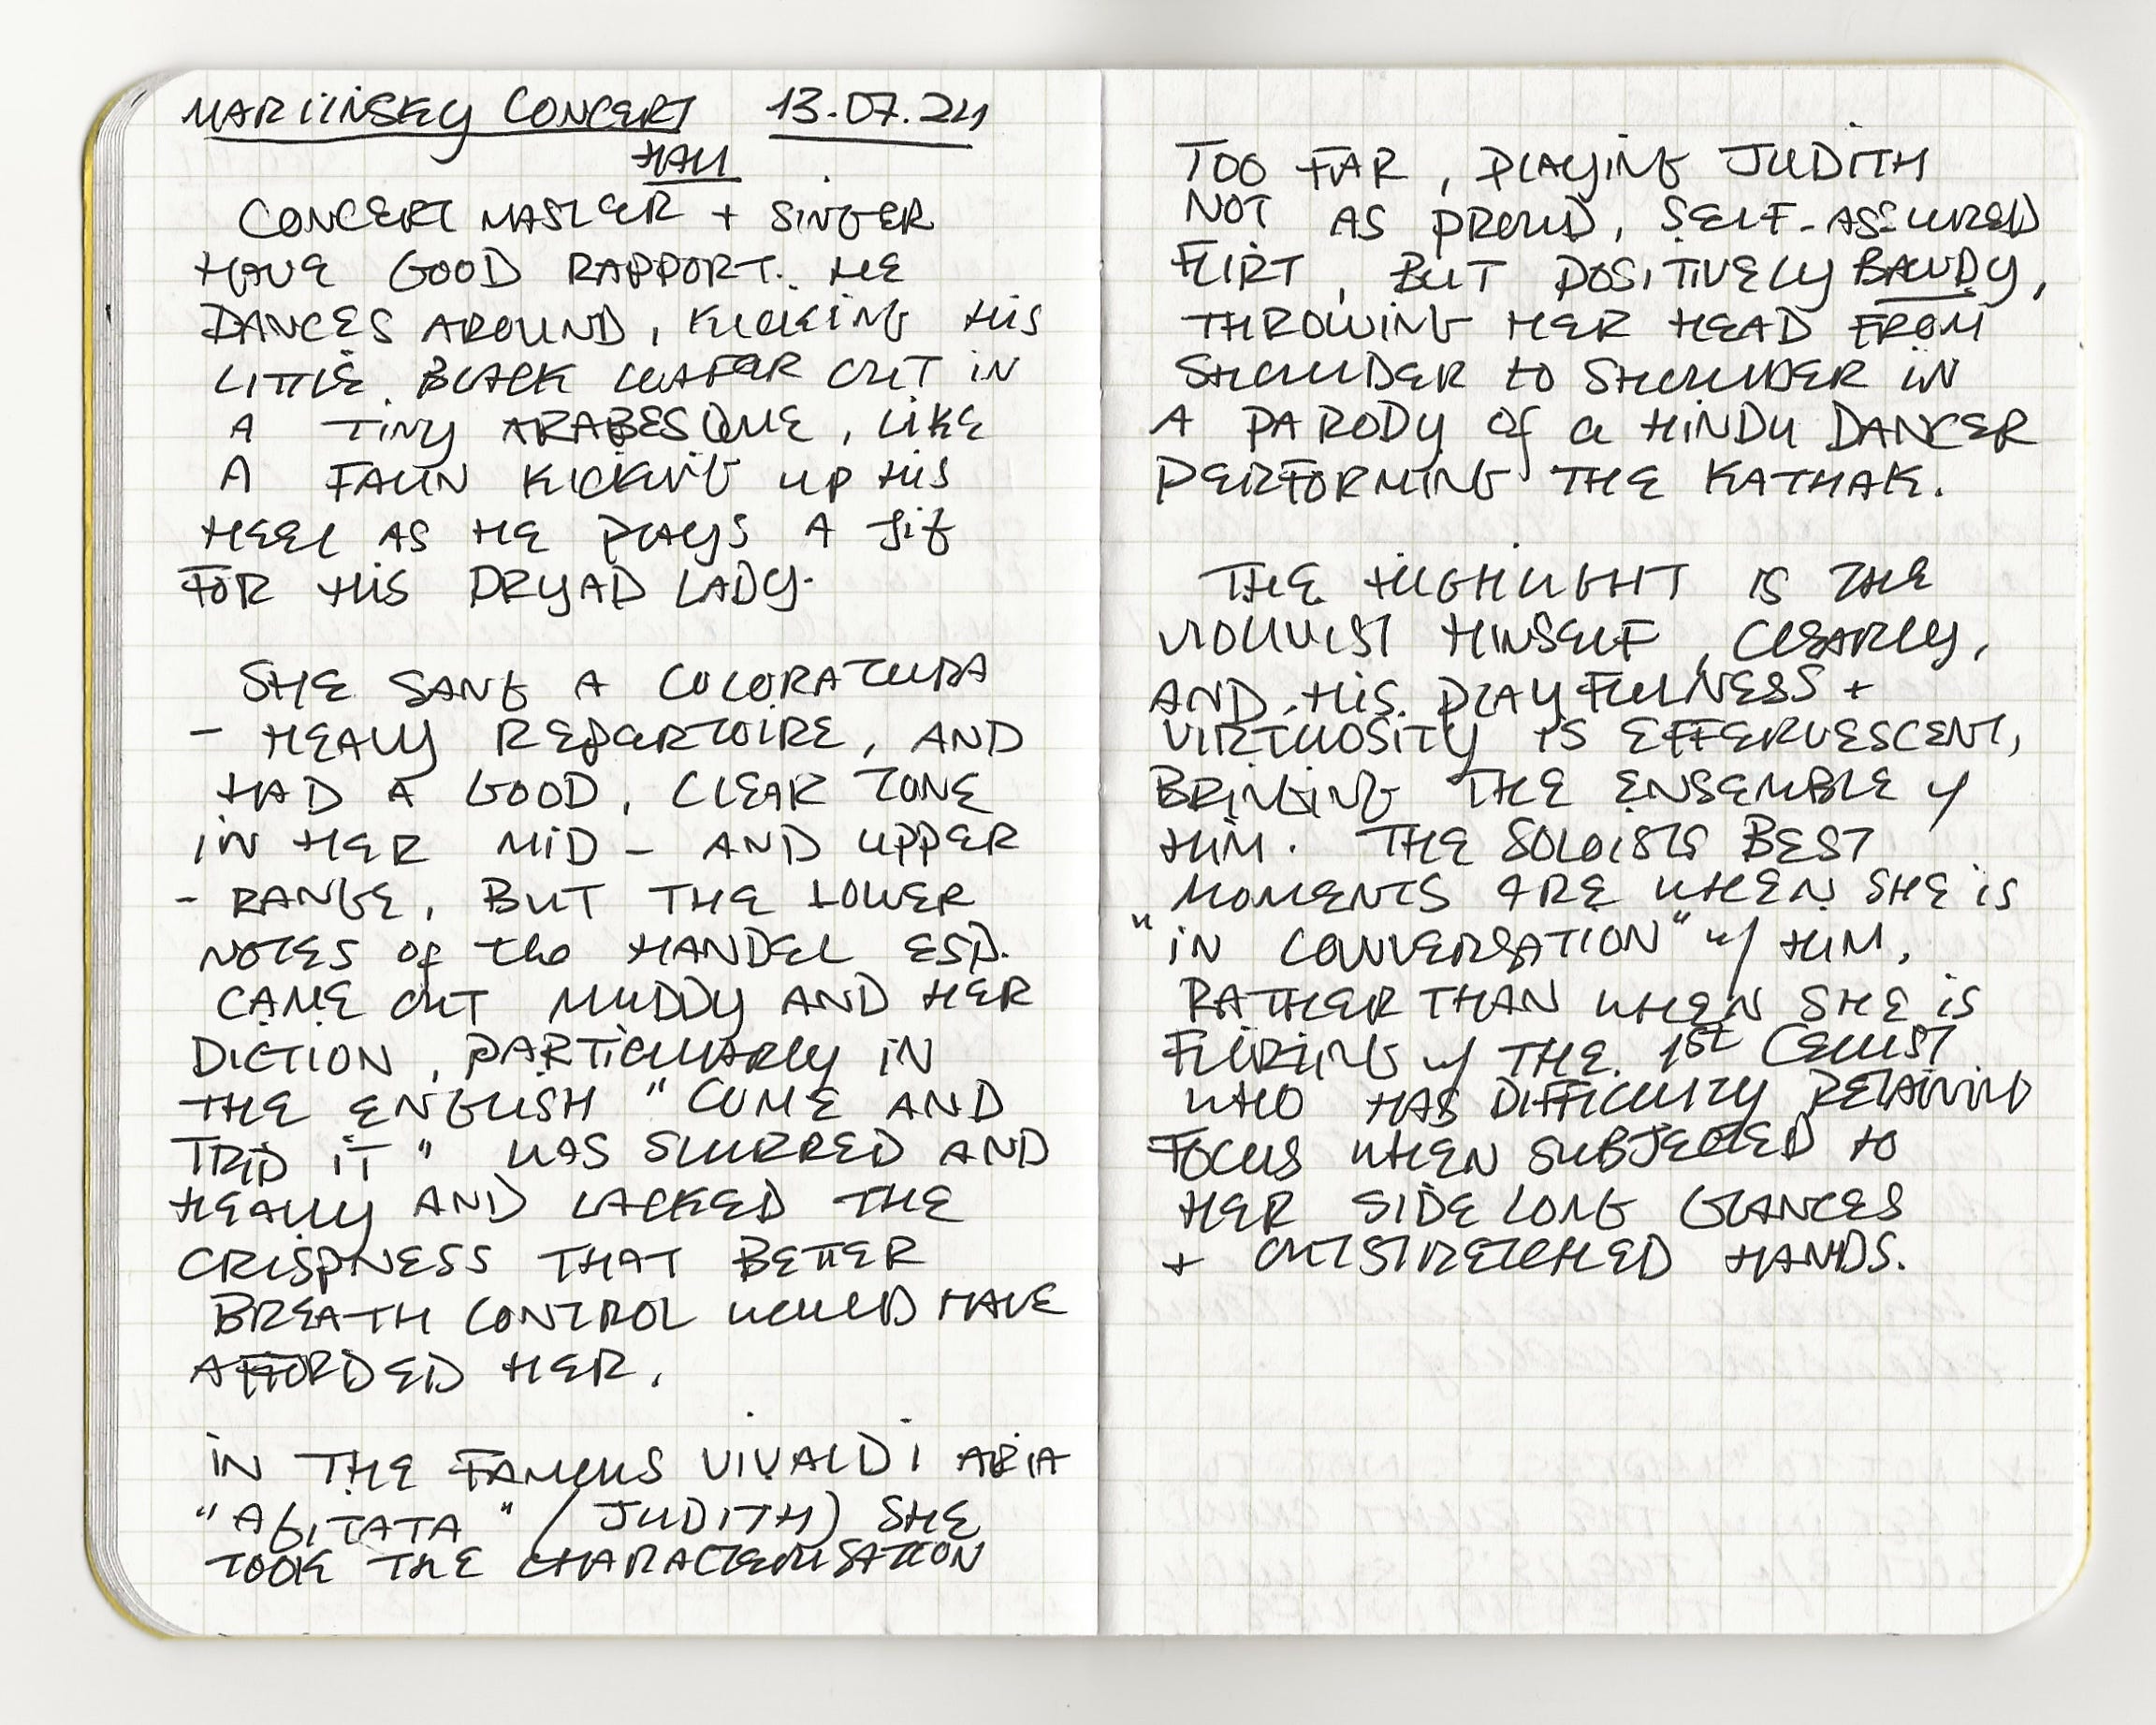 MARIINSKY CONCERT 13.07.24
HALL
CONCERT MASTER + SINGER
HAVE GOOD RAPPORT. HE
DANCES AROUND, KICKING HIS
LITTLE BLACK LOAFER OUT IN
A TINY ARABESQUE, LIKE
A FAUN KICKING UP HIS
HEEL AS HE PLAYS A JIG
FOR HIS DRYAD LADY.
SHE SANG A COLORATURA
- HEAVY REPERTOIRE, AND
HAD A GOOD, CLEAR TONE
IN HER MID - AND UPPER
- RANGE, BUT THE LOWER
NOTES of the HANDEL ESP.
CAME OUT MUDDY AND HER
DICTION, PARTICULARLY IN
THE ENGLISH "COME AND
TRIP IT" WAS SLURRED AND
HEAVY AND LACKED THE
CRISPNESS THAT BETTER
BREATH CONTROL WOULD HAVE
AFFORDED HER.
IN THE FAMOUS VIVALDI ARIA
"AGITATA" (JUDITH) SHE
TOOK THE CHARACTERISATION
TOO FAR, PLAYING JUDITH
NOT AS PROUD, SELF-ASSURED
FLIRT, BUT POSITIVELY BAWDY,
THROWING HER HEAD FROM
SHOULDER to SHOULDER IN
A PARODY of a HINDU DANCER
PERFORMING THE KATHAK.
THE HIGHLIGHT IS THE
VIOLINIST HIMSELF, CLEARLY,
AND HIS PLAYFULNESS +
VIRTUOSITY IS EFFERVESCENT,
BRINGING THE ENSEMBLE w/
HIM. THE SOLOISTS BEST
MOMENTS ARE WHEN SHE IS
"IN CONVERSATION" w/ HIM,
RATHER THAN WHEN SHE IS
FLIRTING w/ THE 1st CELLIST
WHO HAS DIFFICULTY RETAINING
FOCUS WHEN SUBJECTED to
HER SIDE LONG GLANCES
+ OUTSTRETCHED HANDS.